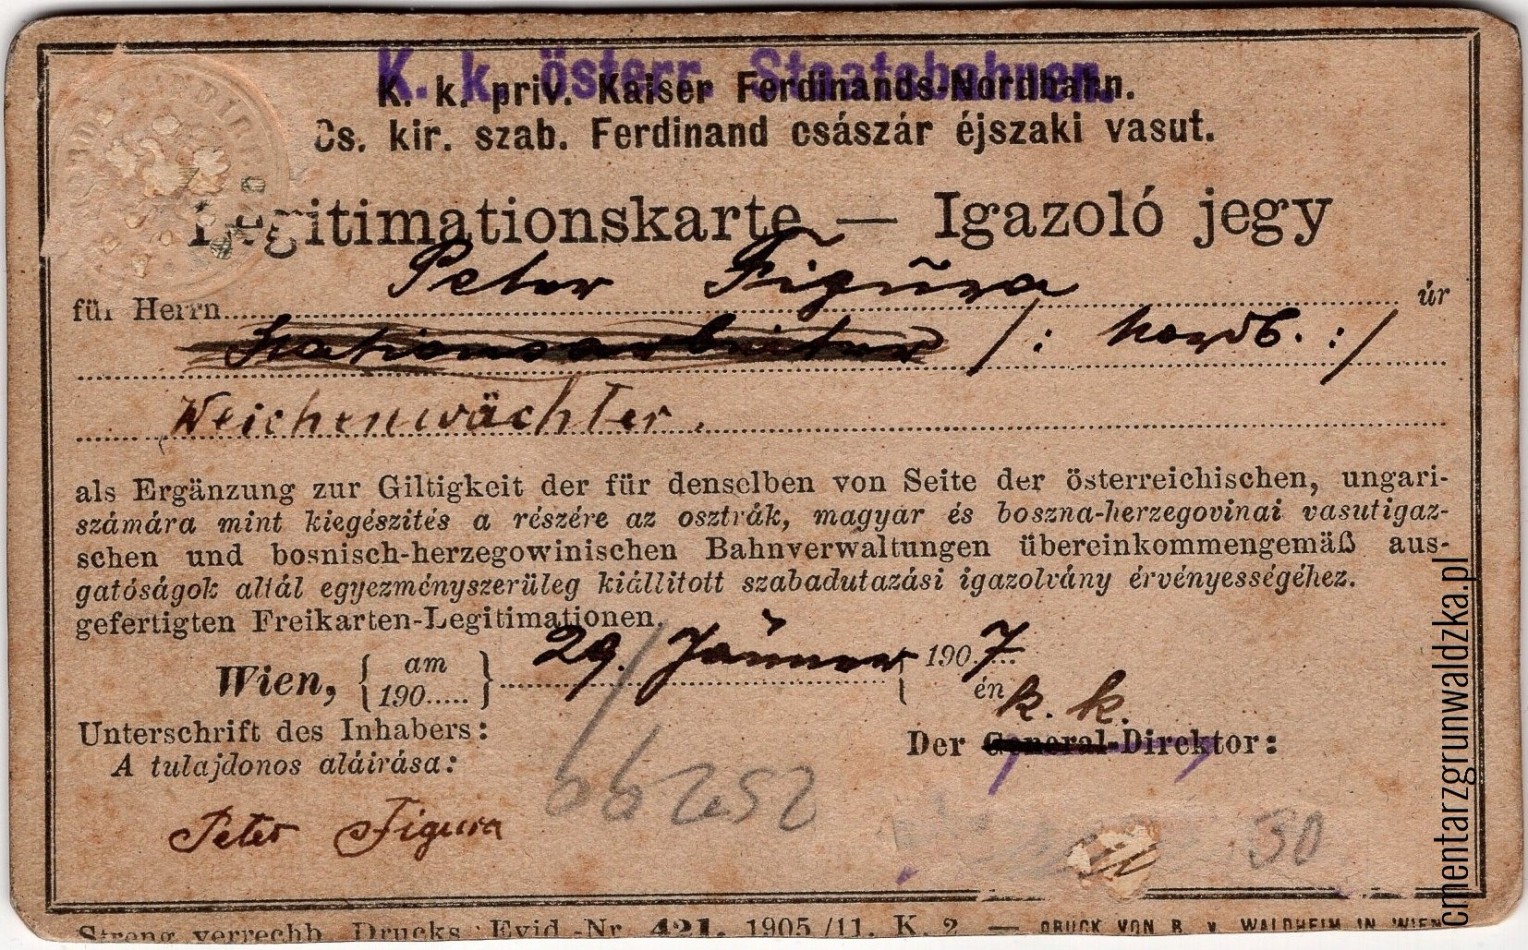 K. k. österr. Staatsbahnen.
K. k. priv. Kaiser Ferdinands-Nordbahn.
Cs. kir. szab. Ferdinand császár éjszaki vasut.
Legitimationskarte — Igazoló jegy
für Herrn Peter Figura úr
Stationsarbeiter /: Nordb. :/
Weichenwächter.
als Ergänzung zur Giltigkeit der für denselben von Seite der österreichischen, ungari-
számára mint kiegészités a részére az osztrák, magyar és boszna-herzegovinai vasutigaz-
schen und bosnisch-herzegowinischen Bahnverwaltungen übereinkommengemäß aus-
gatóságok által egyezményszerüleg kiállitott szabadutazási igazolvány érvényességéhez.
gefertigten Freikarten-Legitimationen.
Wien, { am 190..... } 29. Jänner 1907 én
k. k.
Unterschrift des Inhabers: Der General-Direktor:
A tulajdonos aláirása:
66252
Peter Figura
30
Streng verrechb. Drucks. Evid.-Nr. 421. 1905/11. K. 2 — DRUCK VON R. v. WALDHEIM IN WIEN
cmentarzgrunwaldzka.pl